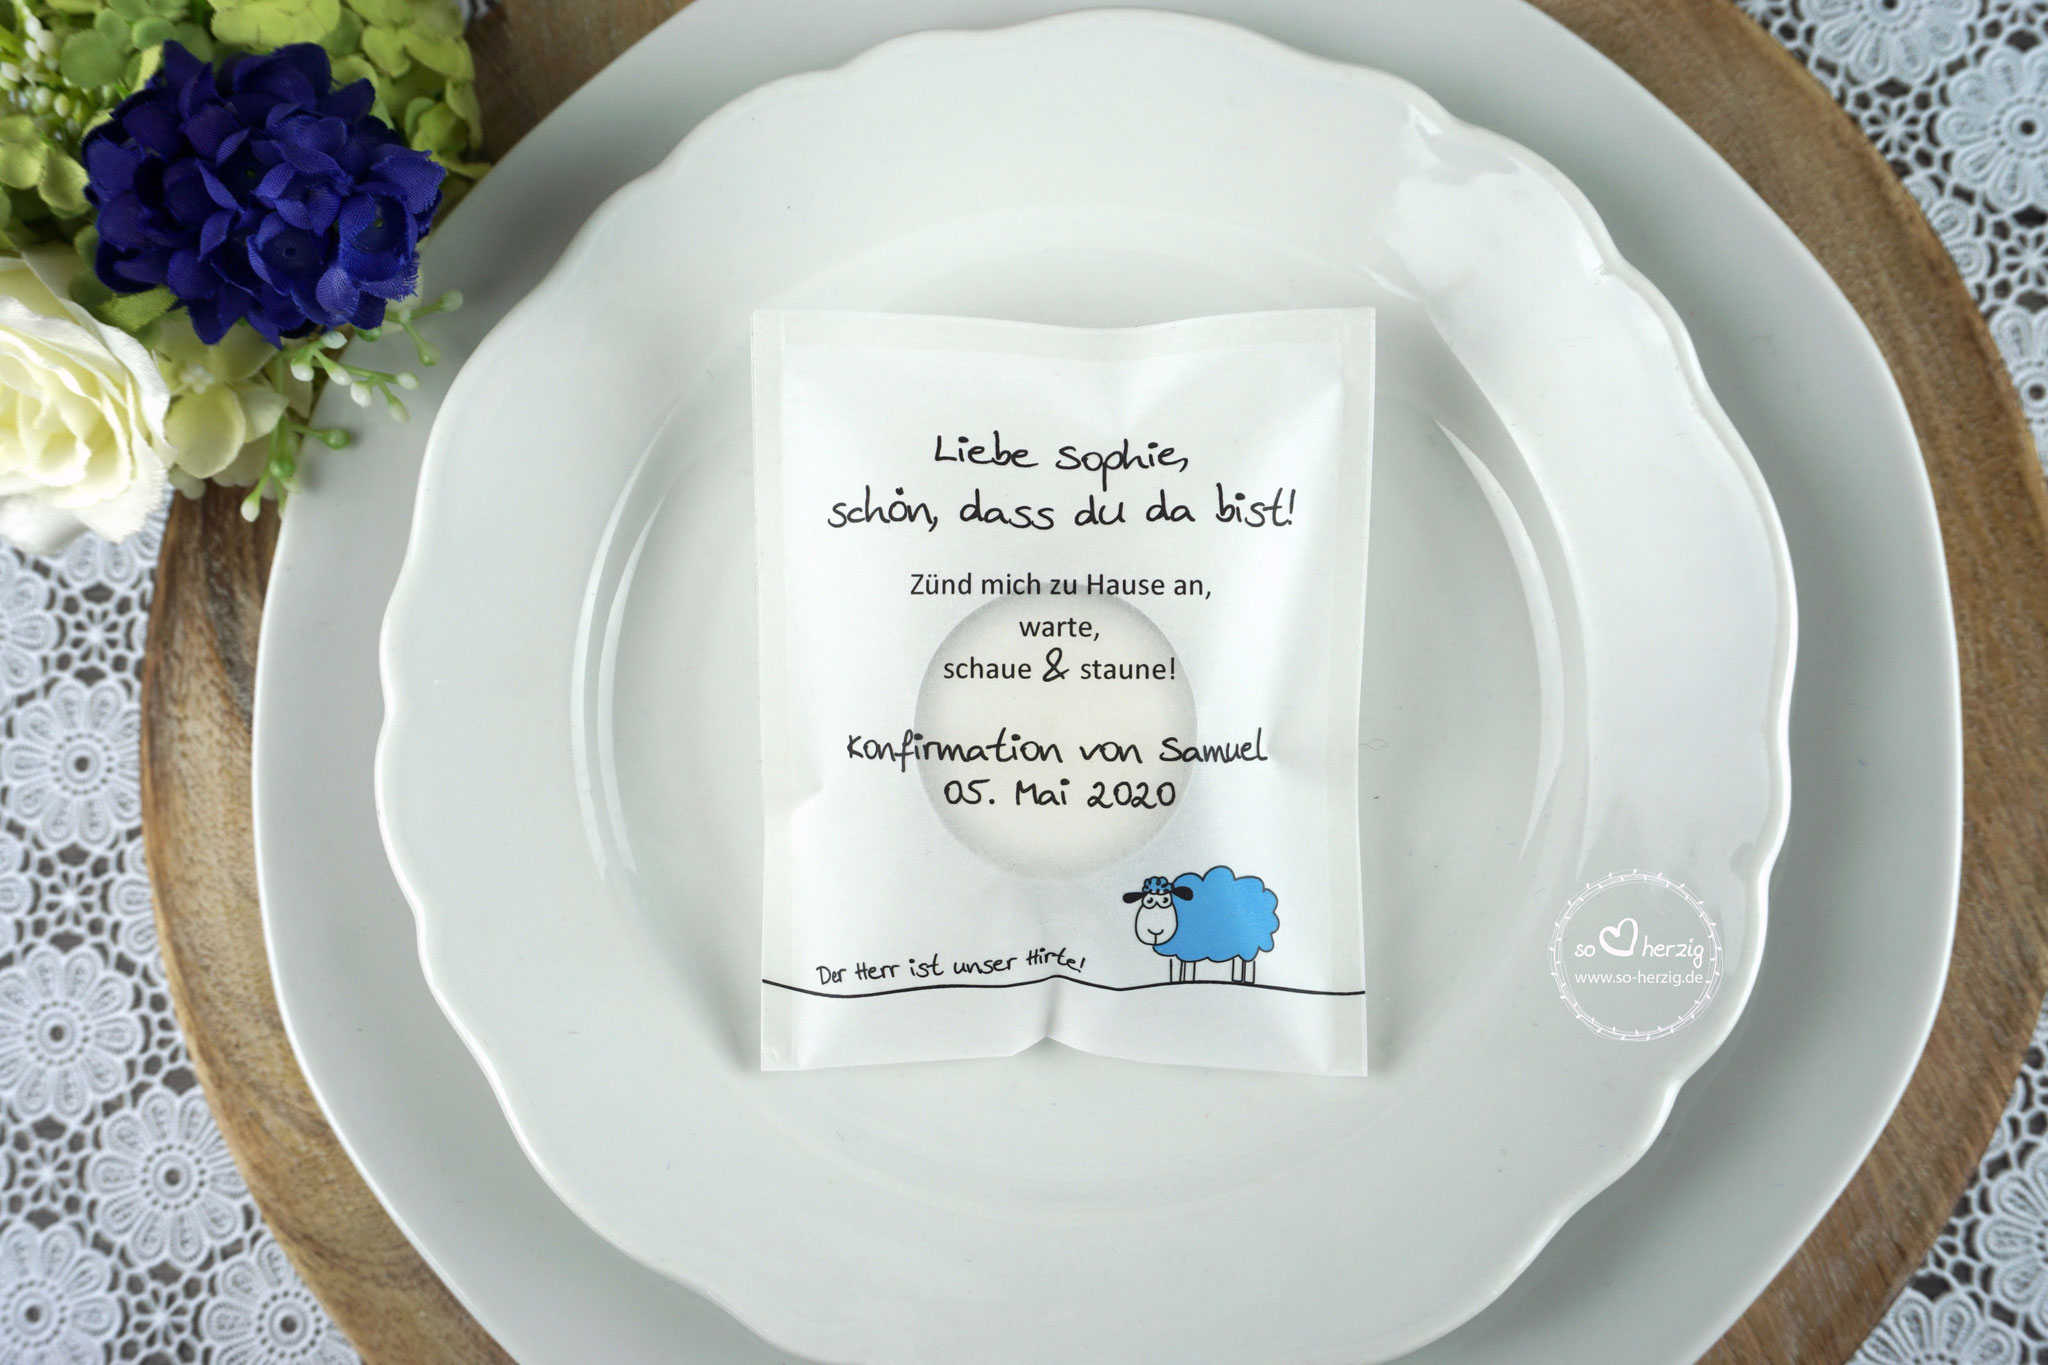 Liebe Sophie,
schön, dass du da bist!
Zünd mich zu Hause an,
warte,
schaue & staune!
Konfirmation von Samuel
05. Mai 2020
Der Herr ist unser Hirte!
so herzig
www.so-herzig.de